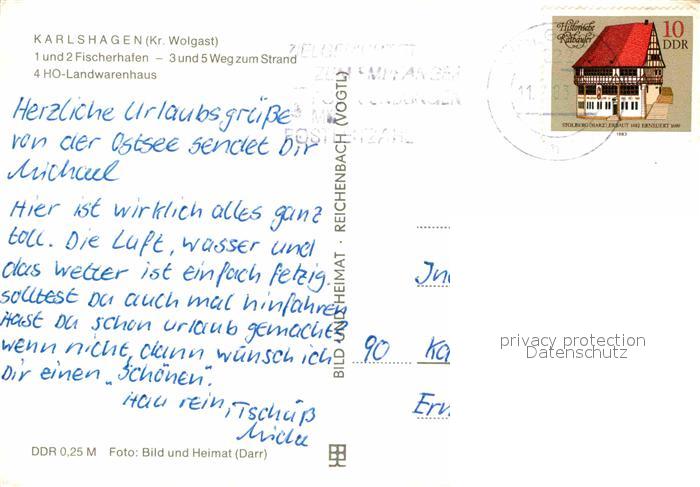 KARLSHAGEN (Kr. Wolgast)
1 und 2 Fischerhafen – 3 und 5 Weg zum Strand
4 HO-Landwarenhaus
Herzliche Urlaubsgrüße
von der Ostsee sendet Dir
Michael
Hier ist wirklich alles ganz
toll. Die Luft, wasser und
das wetter ist einfach fetzig.
solltest Du auch mal hinfahren
Hast Du schon urlaub gemacht?
wenn nicht, dann wünsch ich
Dir einen „Schönen“.
Hau rein, Tschüß
Micha
DDR 0,25 M Foto: Bild und Heimat (Darr)
BILD UND HEIMAT · REICHENBACH (VOGTL)
ZUM EMPFÄNGER
MIT
POSTLEITZAHL
Historische
Rathäuser
10
DDR
STOLBERG (HARZ) ERBAUT 1482 ERNEUERT 1600
1983
90 Ka
Ern
privacy protection
Datenschutz